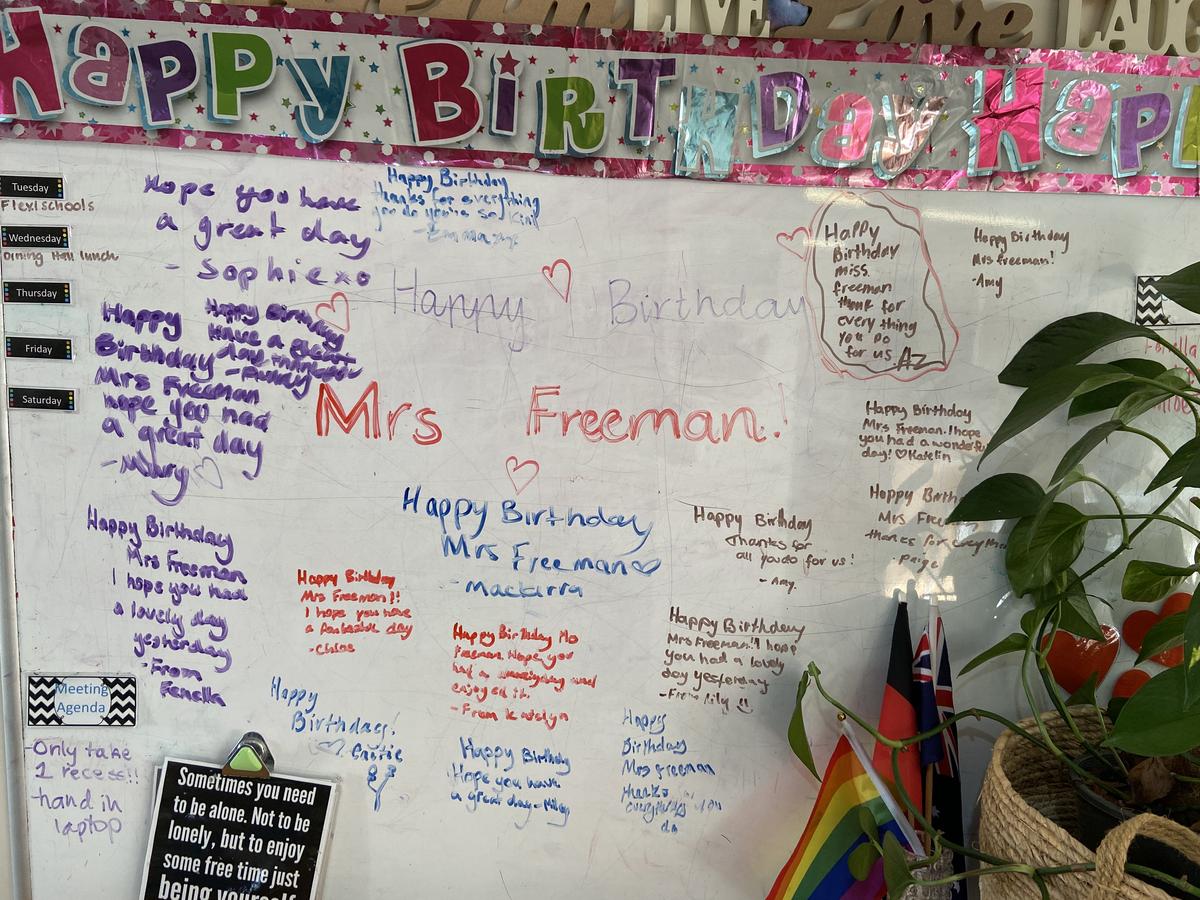 LIVE Love LAUG
HAPPY BIRTHDAY HAPP
Tuesday
Flexischools
Wednesday
lunch
Thursday
Friday
Saturday
Hope you have
a great day
- Sophie xo
Happy Birthday
thanks for everything
you do you're so kind
Happy Birthday
Mrs Freeman!
Happy
Birthday
Mrs Freeman
hope you had
a great day
Happy Birthday
Have a great
day
Happy
Birthday
miss
freeman
thank for
every thing
you Do
for us. AZ
Happy Birthday
Mrs Freeman!
-Amy
Happy Birthday
Mrs Freeman. I hope
you had a wonderful
day! ♡Katelin
Happy Birth
Mrs Free
thanks for everythin
- Paige
Happy Birthday
Mrs Freeman♡
- Macarra
Happy Birthday
Thanks for
all you do for us!
- Amy.
Happy Birthday
Mrs Freeman
I hope you had
a lovely day
yesterday
-From
Fenella
Happy Birthday
Mrs Freeman!!
I hope you have
a fantastic day
-Chloe
Happy Birthday
Freeman. Hope you
had a day and
enjoyed it.
- From Katelyn
Happy Birthday
Mrs Freeman!! I hope
you had a lovely
day yesterday
-From lily
Happy
Birthday!
Happy Birthday
Hope you have
a great day - Miley
Happy
Birthday
Mrs Freeman
thanks
everything you
do
Meeting
Agenda
-Only take
1 recess!!
-hand in
laptop
Sometimes you need
to be alone. Not to be
lonely, but to enjoy
some free time just
being yourself